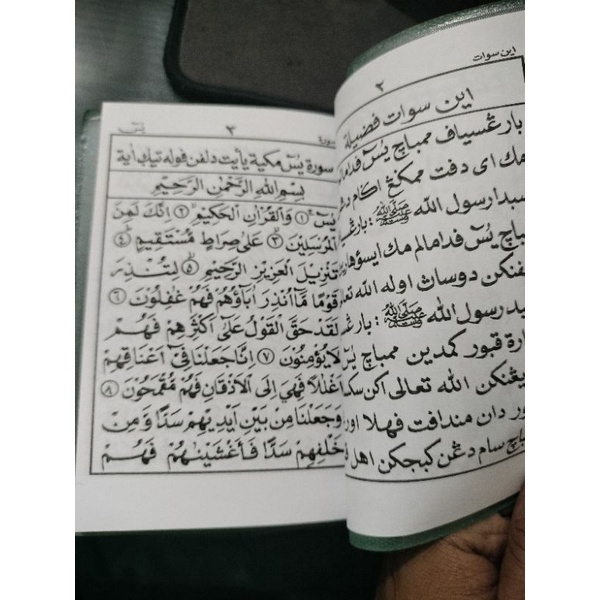 اين سوات
٢
اين سوات فضيلة
بارڠسياف ممباچ يسٓ فدام
مك اي دفت ممكڠ اكام د
سبدا رسول الله ﷺ : بارڠ
باچ يسٓ فدامالم مك ايسوها
فنكن دوساڽ اوله الله تعا
بد رسول الله ﷺ : بارڠ
ارة قبور كمدين ممباچ يسٓ
يڠنكن الله تعالى اكن سك
ور دان مندافت فهلا اور
باچ سام دڠن كبجكن اهل
سورة ٣ يسٓ
سورة يسٓ مكية يايت دلفن فوله تيݢ اية
بِسْمِ اللّٰهِ الرَّحْمٰنِ الرَّحِيْمِ
يٰسٓ ﴿١﴾ وَالْقُرْاٰنِ الْحَكِيْمِ ﴿٢﴾ اِنَّكَ لَمِنَ
الْمُرْسَلِيْنَ ﴿٣﴾ عَلٰى صِرَاطٍ مُّسْتَقِيْمٍ ﴿٤﴾
تَنْزِيْلَ الْعَزِيْزِ الرَّحِيْمِ ﴿٥﴾ لِتُنْذِرَ
قَوْمًا مَّآ اُنْذِرَ اٰبَآؤُهُمْ فَهُمْ غٰفِلُوْنَ ﴿٦﴾
لَقَدْ حَقَّ الْقَوْلُ عَلٰٓى اَكْثَرِهِمْ فَهُمْ
لَا يُؤْمِنُوْنَ ﴿٧﴾ اِنَّا جَعَلْنَا فِيْٓ اَعْنَاقِهِمْ
اَغْلٰلًا فَهِيَ اِلَى الْاَذْقَانِ فَهُمْ مُّقْمَحُوْنَ ﴿٨﴾
وَجَعَلْنَا مِنْۢ بَيْنِ اَيْدِيْهِمْ سَدًّا وَّمِنْ
خَلْفِهِمْ سَدًّا فَاَغْشَيْنٰهُمْ فَهُمْ